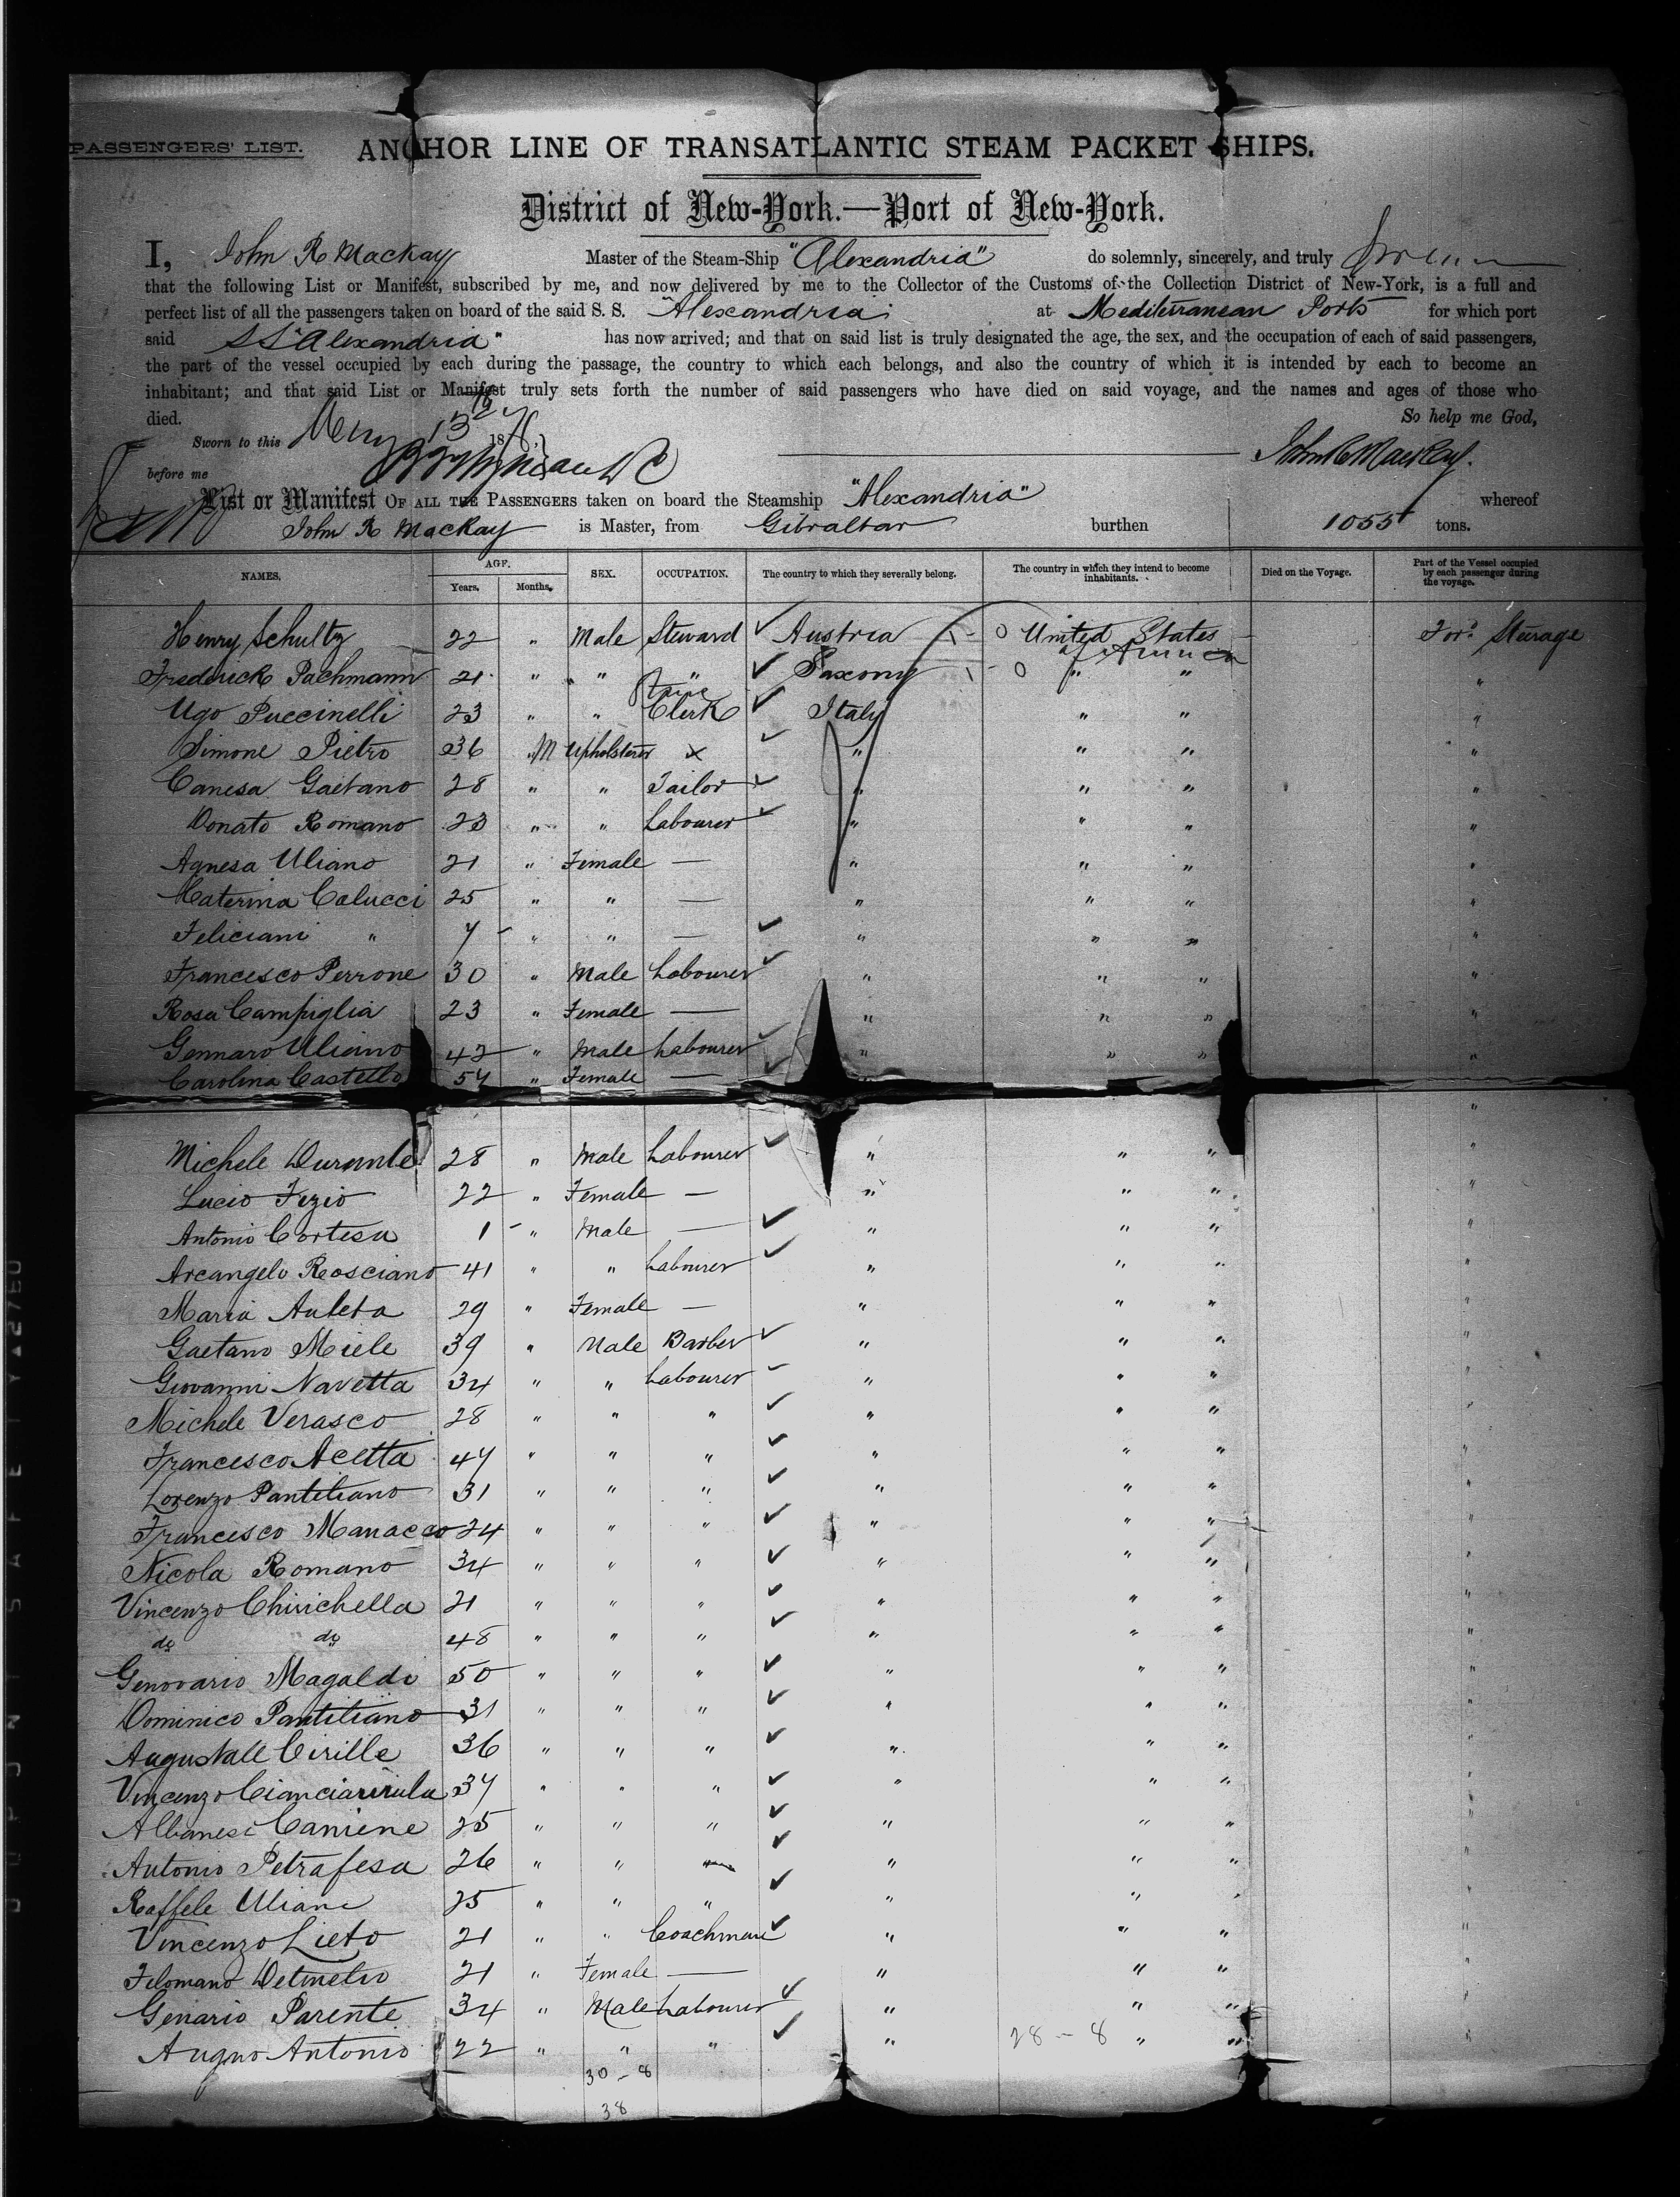 PASSENGERS' LIST.
ANCHOR LINE OF TRANSATLANTIC STEAM PACKET SHIPS.
District of New-York.—Port of New-York.
I, John R Mackay Master of the Steam-Ship "Alexandria" do solemnly, sincerely, and truly
that the following List or Manifest, subscribed by me, and now delivered by me to the Collector of the Customs of the Collection District of New-York, is a full and
perfect list of all the passengers taken on board of the said S. S. "Alexandria" at Mediterranean Ports for which port
said SS "Alexandria" has now arrived; and that on said list is truly designated the age, the sex, and the occupation of each of said passengers,
the part of the vessel occupied by each during the passage, the country to which each belongs, and also the country of which it is intended by each to become an
inhabitant; and that said List or Manifest truly sets forth the number of said passengers who have died on said voyage, and the names and ages of those who
died. So help me God,
Sworn to this 13 18
before me John R Mackay
List or Manifest OF ALL THE PASSENGERS taken on board the Steamship "Alexandria" whereof
John R Mackay is Master, from Gibraltar burthen 1055 tons.
NAMES. AGE. Years. Months. SEX. OCCUPATION. The country to which they severally belong. The country in which they intend to become inhabitants. Died on the Voyage. Part of the Vessel occupied by each passenger during the voyage.
Henry Schultz 22 " Male Steward Austria United States of America For'd Steerage
Frederick Pachmann 21 " " " Saxony " " "
Ugo Puccinelli 23 " " Clerk Italy " " "
Simone Pietro 36 " M Upholsterer x " " " "
Canesa Gaetano 28 " " Tailor " " " "
Donato Romano 23 " " Labourer " " " "
Agnesa Uliano 21 " Female — " " " "
Caterina Colucci 25 " " — " " " "
Feliciani " 7 " " — " " " "
Francesco Perrone 30 " Male Labourer " " " "
Rosa Campiglia 23 " Female — " " " "
Gennaro Uliano 42 " Male Labourer " " " "
Carolina Castello 54 " Female — " "
Michele Durante 28 " Male Labourer " " " "
Lucio Fezio 22 " Female — " " " "
Antonio Cortesa 1 " Male — " " " "
Arcangelo Rosciano 41 " " Labourer " " " "
Maria Auleta 29 " Female — " " " "
Gaetano Miele 39 " Male Barber " " " "
Giovanni Navetta 34 " " Labourer " " " "
Michele Verasco 28 " " " " " " "
Francesco Acetta 47 " " " " " " "
Lorenzo Pantiliano 31 " " " " " " "
Francesco Manacco 24 " " " " " " "
Nicola Romano 34 " " " " " " "
Vincenzo Chirichella 21 " " " " " " "
do do 48 " " " " " " "
Genovario Magaldi 50 " " " " " " "
Dominico Pantiliano 31 " " " " " " "
Augustall Cirille 36 " " " " " " "
Vincenzo Cianciarirula 37 " " " " " " "
Albanesi Camene 25 " " " " " " "
Antonio Petrafesa 26 " " " " " " "
Raffele Uliani 25 " " " " " " "
Vincenzo Lieto 21 " " Coachman " " " "
Filomano Detmetio 21 " Female — " " " "
Genario Parente 34 " Male Labourer " " " "
Augno Antonio 22 " " " " 28 - 8 " " "
30 - 8
38